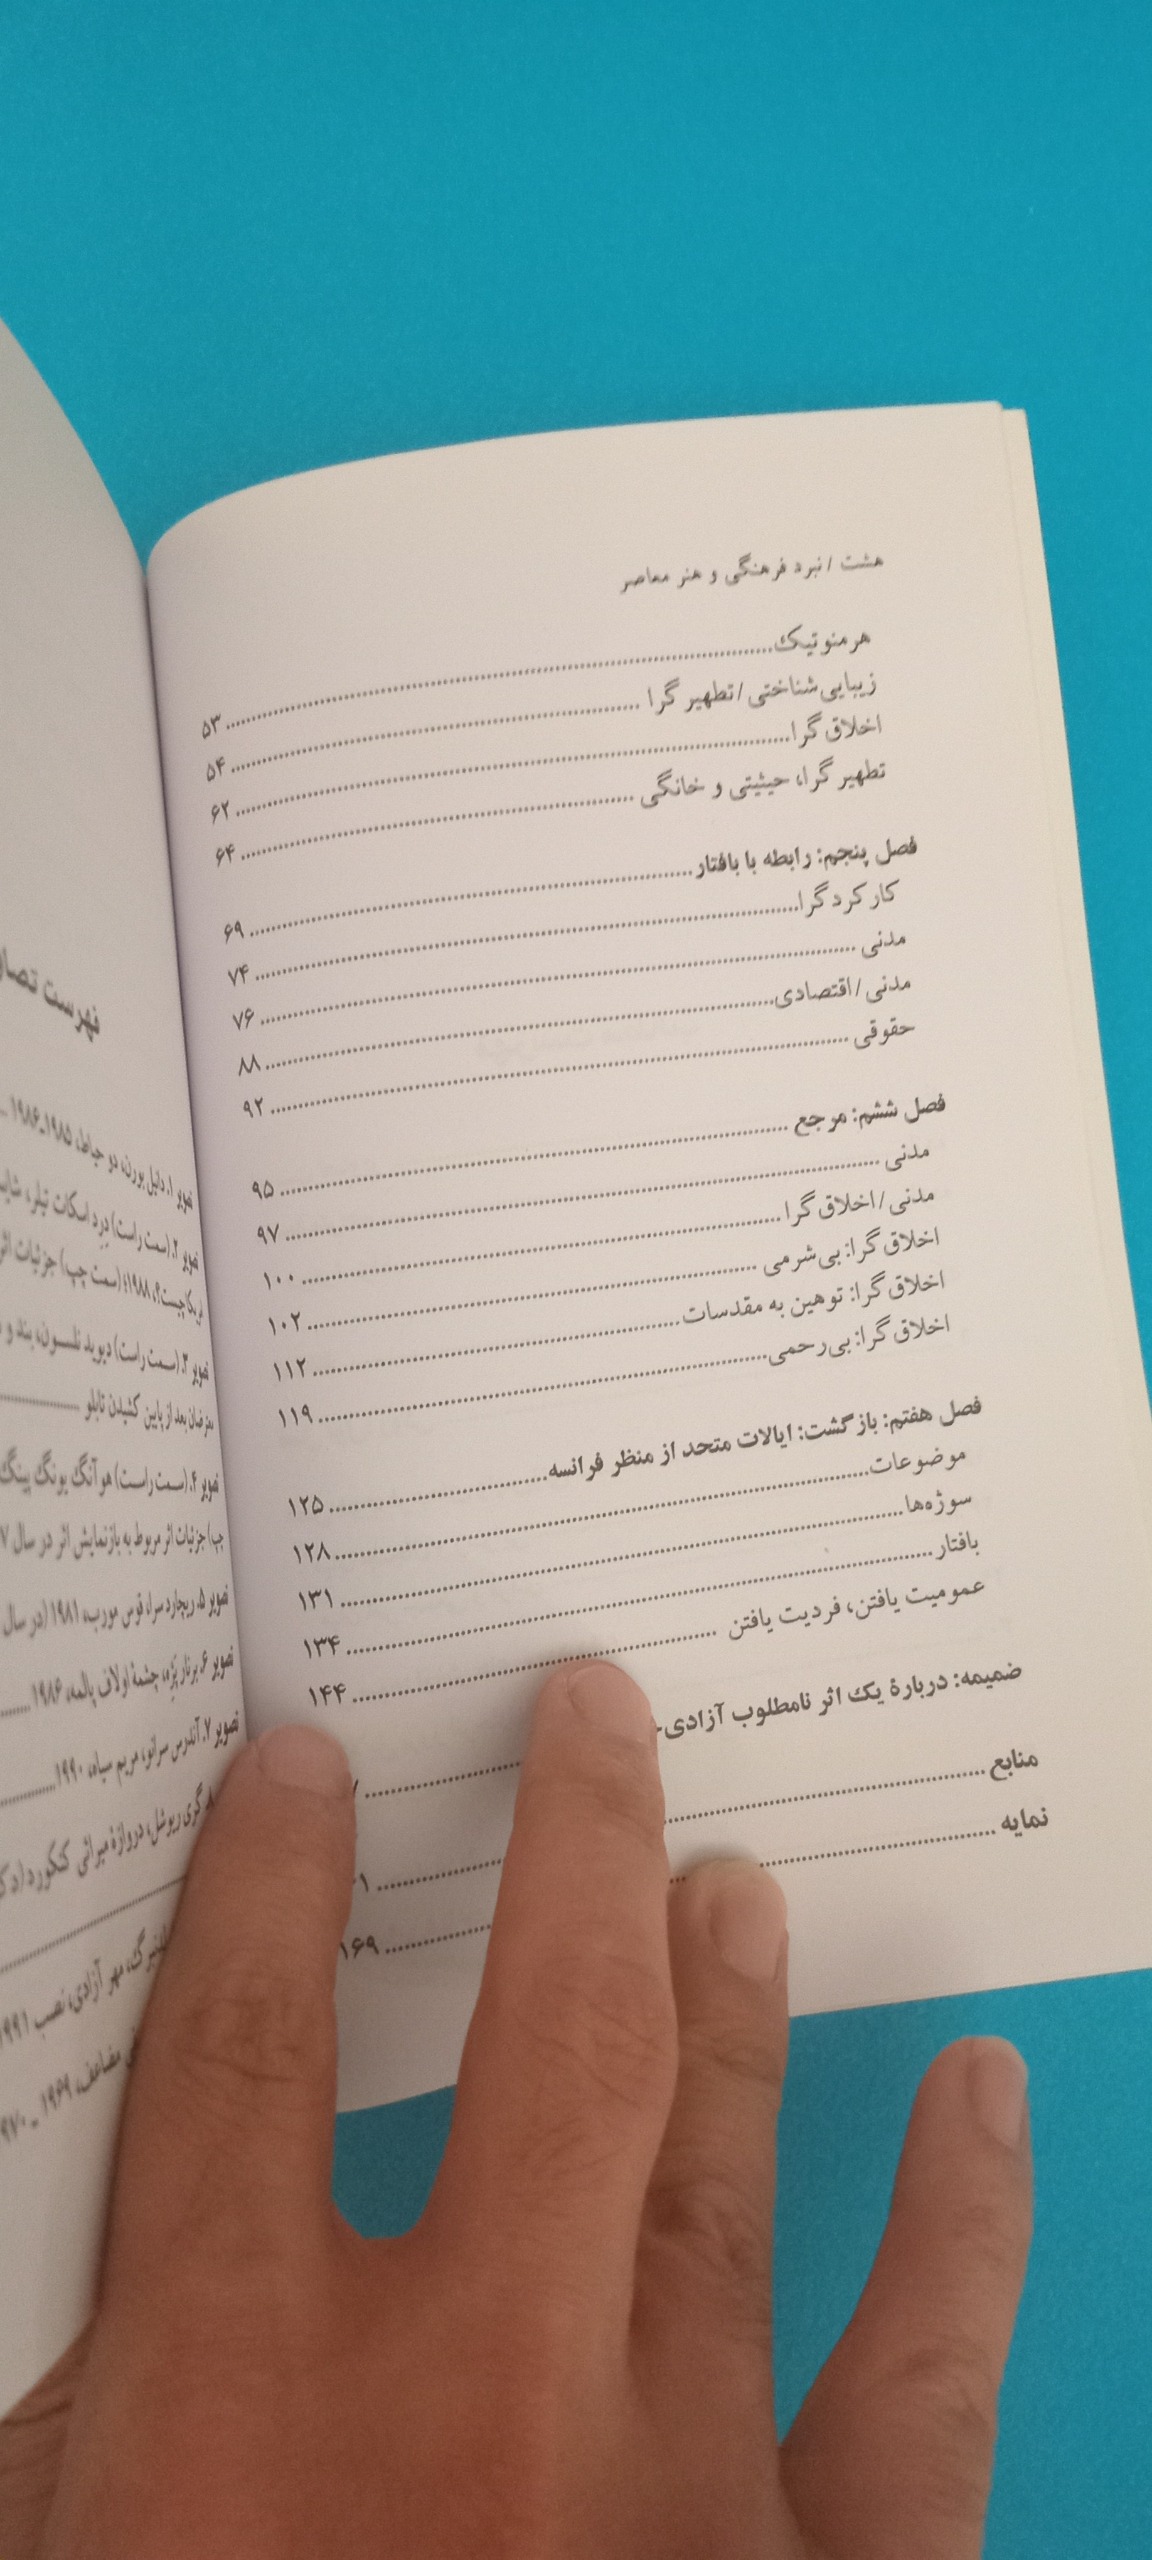 هشت / نبرد فرهنگی و هنر معاصر
هرمنوتیک ۵۳
زیبایی‌شناختی / تطهیرگرا ۵۴
اخلاق‌گرا ۶۲
تطهیرگرا، حیثیتی و خانگی ۶۴
فصل پنجم: رابطه با بافتار ۶۹
کارکردگرا ۷۴
مدنی ۷۶
مدنی / اقتصادی ۸۸
حقوقی ۹۲
فصل ششم: مرجع ۹۵
مدنی ۹۷
مدنی / اخلاق‌گرا ۱۰۰
اخلاق‌گرا: بی‌شرمی ۱۰۲
اخلاق‌گرا: توهین به مقدسات ۱۱۲
اخلاق‌گرا: بی‌رحمی ۱۱۹
فصل هفتم: بازگشت: ایالات متحد از منظر فرانسه ۱۲۵
موضوعات ۱۲۸
سوژه‌ها ۱۳۱
بافتار ۱۳۴
عمومیت یافتن، فردیت یافتن ۱۴۴
ضمیمه: دربارهٔ یک اثر نامطلوب آزادی-
منابع
نمایه ۱۶۹
فهرست
تصویر ۱. دانیل بورن، دو حیاط، ۱۹۸۵ـ۱۹۸۶
تصویر ۲. (سمت راست) درد اسکات تیلر،
۱۹۸۸؛ (سمت چپ) جزئیات
تصویر ۳. (سمت راست) دیوید نلسون،
معترضان بعد از پایین کشیدن تابلو
تصویر ۴. (سمت راست) هوآنگ یونگ پینگ
چپ) جزئیات اثر مربوط به بازنمایش اثر در سال
تصویر ۵. ریچارد سرا، قوس مورب، ۱۹۸۱ (در سال
تصویر ۶. برنار پَژِه، چشمهٔ اولاف پالمه، ۱۹۸۶
تصویر ۷. آندرس سرانو، مریم سیاه، ۱۹۹۰
گری ریوشل، دروازهٔ میراثی کنکورد
مهر آزادی، نصب ۱۹۹۱
مضاعف، ۱۹۶۹ ـ